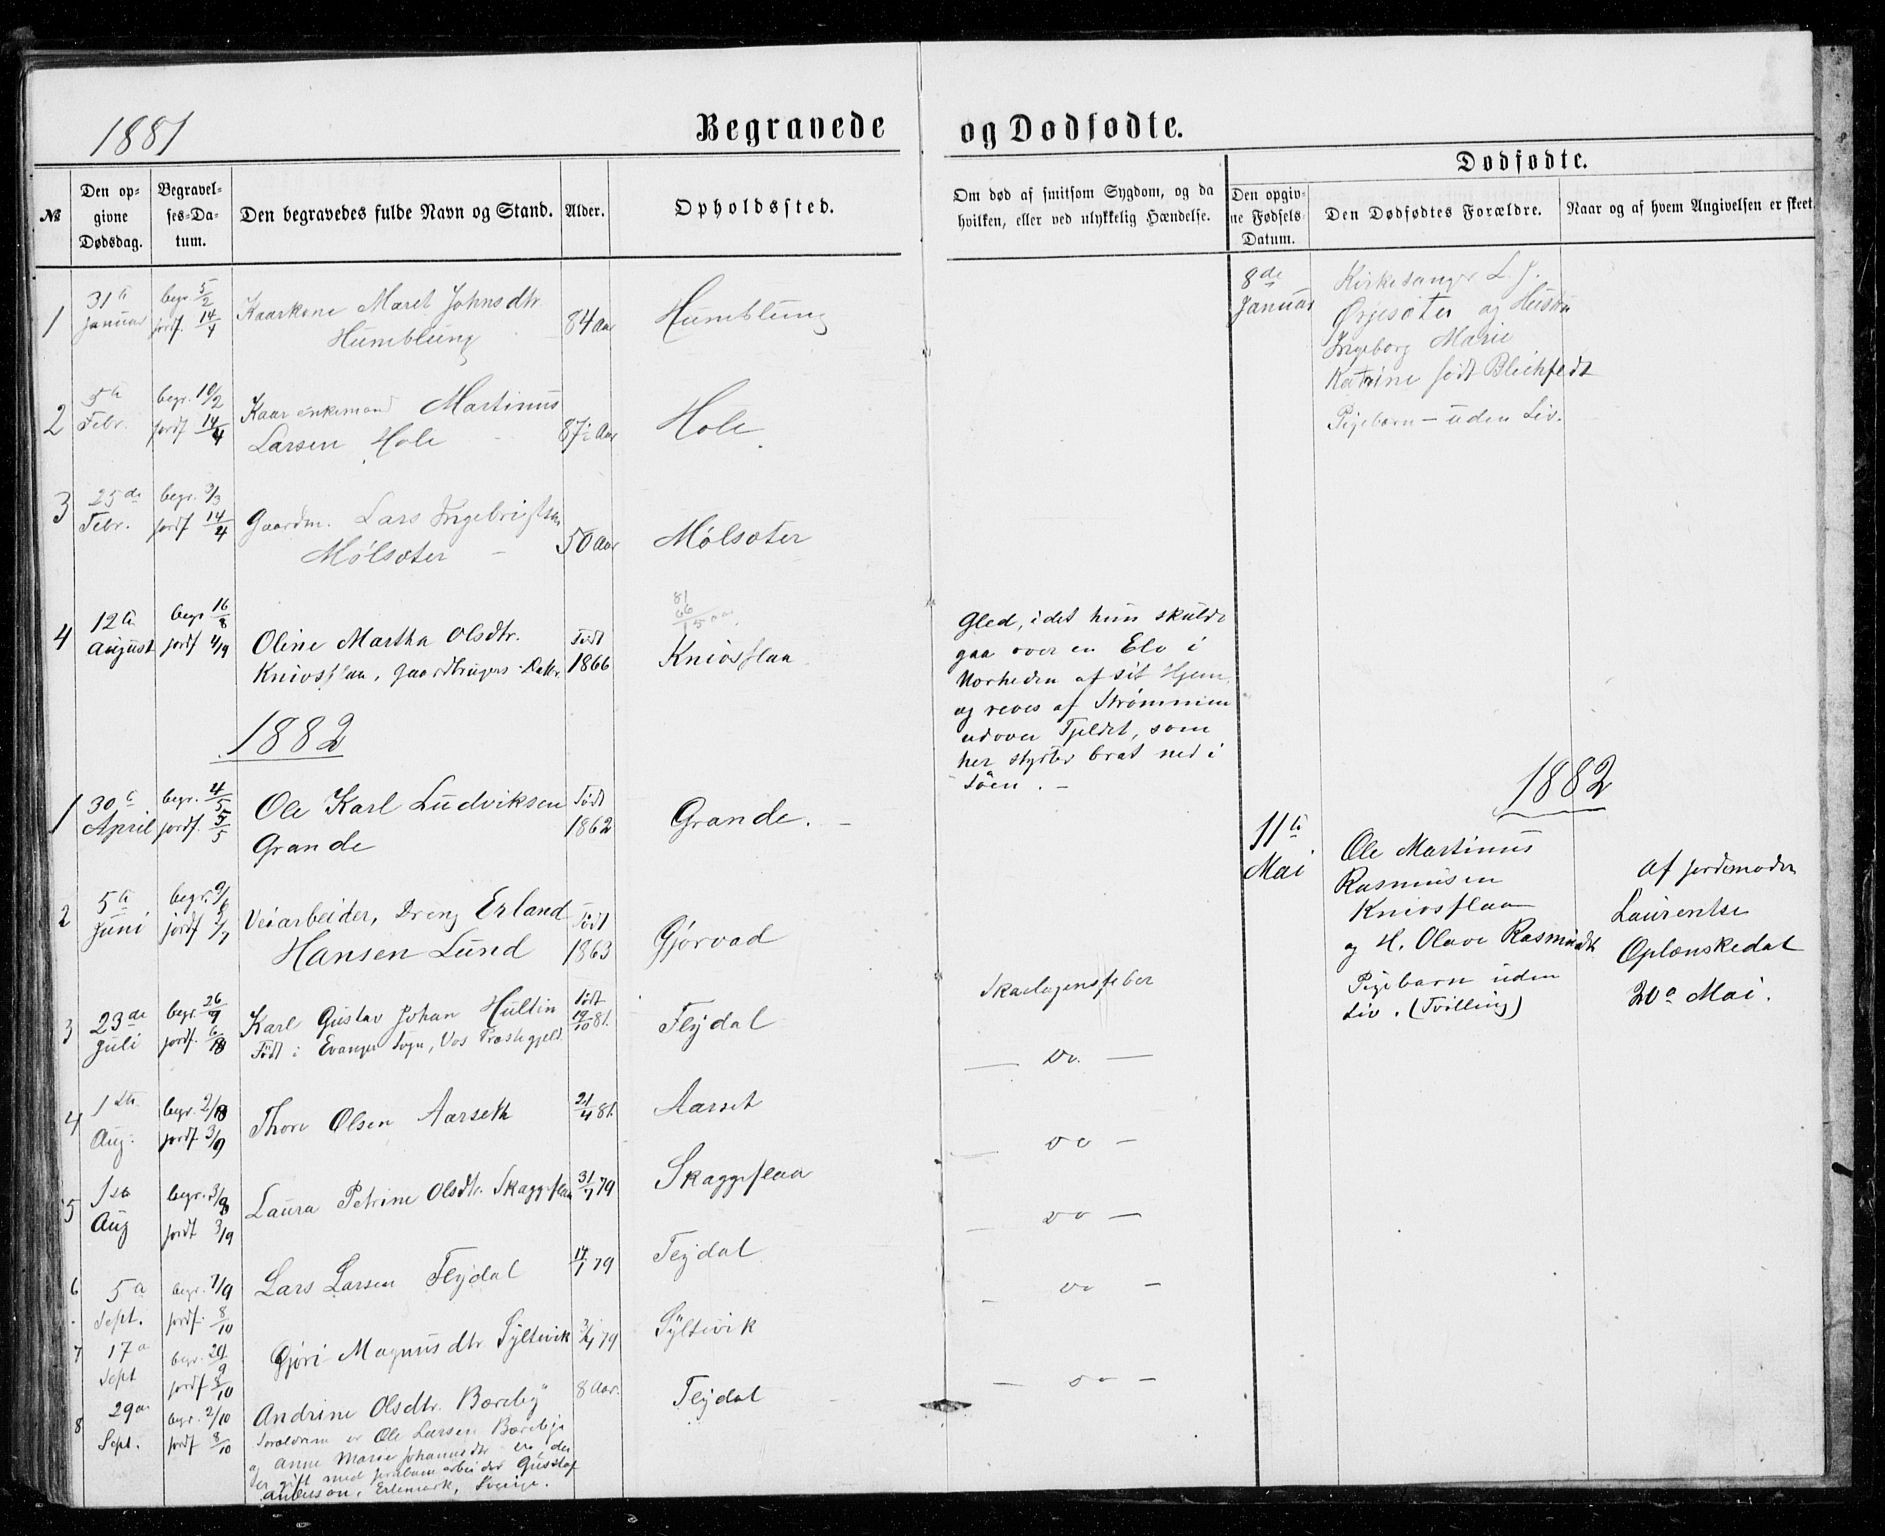 1881
Begravede og Dødfødte.
Dødfødte.
№
Den op-
givne
Dødsdag.
Begravel-
ses-Da-
tum.
Den begravedes fulde Navn og Stand.
Alder.
Opholdssted.
Om død af smitsom Sygdom, og da
hvilken, eller ved ulykkelig Hændelse.
Den opgiv-
ne Fødsels-
Datum.
Den Dødfødtes Forældre.
Naar og af hvem Angivelsen er skeet.
1
31te
Januar
begr. 5/2
jordf. 14/4
Kaarkone Maret Johnsdtr
Humblung
84 Aar
Humblung
2
5te
Febr.
begr. 10/2
jordf 14/4
Kaarenkemand Martinus
Larsen Hole
87½ Aar
Hole
3
25de
Febr.
begr. 3/3
jordf 14/4
Gaardm. Lars Ingebrigtsen
Mølsæter
50 Aar
Mølsæter
4
12te
August
begr 16/8
jordf 4/9
Oline Martha Olsdtr.
Knivsflaa, Gaardbrugers Datter
Født
1866
81
66
15 aar
Knivsflaa
Gled, idet hun skulde
gaa over en Elv i
Nærheden af sit Hjem,
og reves af Strømmen
udover Fjeldet, som
her styrter brat ned i
Söen. -
1882
1
30te
April
begr. 4/5
jordf. 5/5
Ole Karl Ludviksen
Grande
Født
1862
Grande.
2
5te
Juni
begr. 9/6
jordf 2/7
Veiarbeider, Dreng Erland
Hansen Lund
Født
1863
Gjørvad
3
23de
Juli
begr. 26/7
jordf. 6/8
Karl Gustav Johan Hultin
Født i Evanger Sogn, Vos Præstegjeld
Født
19/10 81.
Flydal
Skarlagensfeber
4
1ste
Aug.
begr. 2/8
jordf 3/9
Thore Olsen Aarseth
21/4 81.
Aarset
— do. —
5
1ste
Aug
begr. 3/8
jordf 3/9
Laura Petrine Olsdtr. Skaggeflaa
31/7 79
Skaggeflaa
— do —
6
5te
Sept.
begr. 7/9
jordf. 8/10
Lars Larsen Flydal
14/1 79
Flydal
— do —
7
17de
Sept
begr. 20/9
jordf 8/10
Gjøri Magnusdtr Syltevik
3/4 79
Syltevik
— do —
8
29de
Sept.
begr. 2/10
jordf 8/10
Andrine Olsdtr. Bæreby
Forældrene er Ole Larsen Bæreby
og Anne Marie Johannesdtr
er gift med Jernbanearbeider Gustaf
Anderson, Sverige.
8 Aar.
Flydal
— do —
8de
Januar
Kirkesanger L. J.
Ørjesæter og Hustru
Ingeborg Marie
Katrine født Blichfeldt
Pigebarn — uden Liv.
1882
11te
Mai
Ole Martinus
Rasmusen
Knivsflaa
og H. Olave Rasmusdtr
Pigebarn uden
Liv. (Tvilling)
af Jordemoder
Laurentse
Oplænskedal
20de Mai.